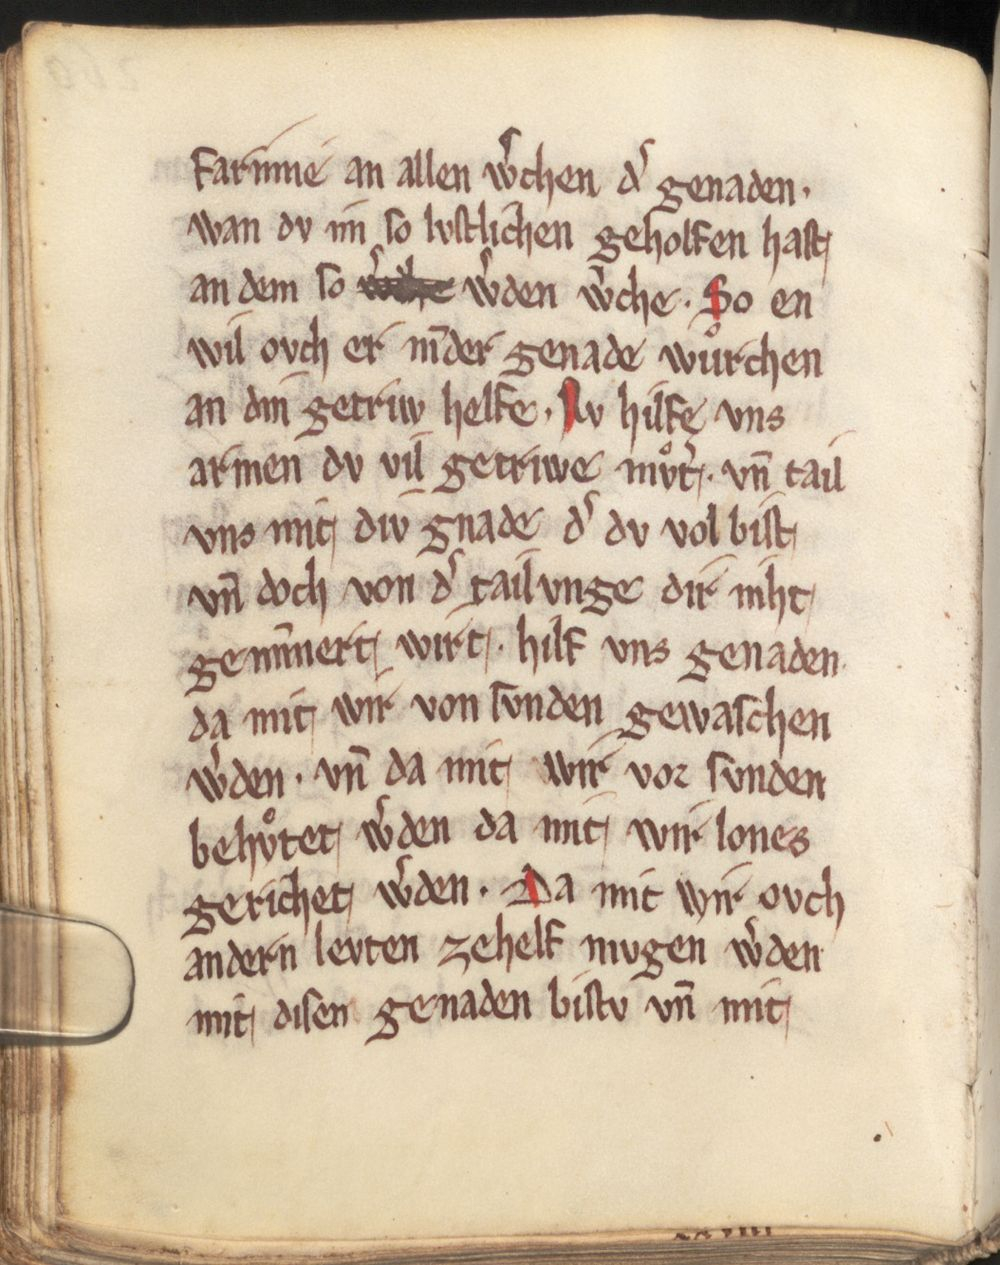 Farinne an allen w̾chen d̾ genaden.
wan dv im so lvstlichen geholfen hast
an dem so w̾den w̾che. So en
wil ovch er in̄der genade wu̍rchen
an din getriw helfe. Nv hilfe vns
armen dv vil getriwe mvͦt̾. vn̄ tail
vns mit div gnade d̾ dv vol bist
vn̄ doch von d̾ tailvnge dir niht
gemīnert wirt. hilf vns genaden
da mit wir von svnden gewaschen
w̾den. vn̄ da mit wir vor svnden
behvͦtet w̾den da mit wir lones
gerichet w̾den. Da mit wir ovch
andern levten zehelf mvgen w̾den
mit disen genaden bistv vn̄ mit